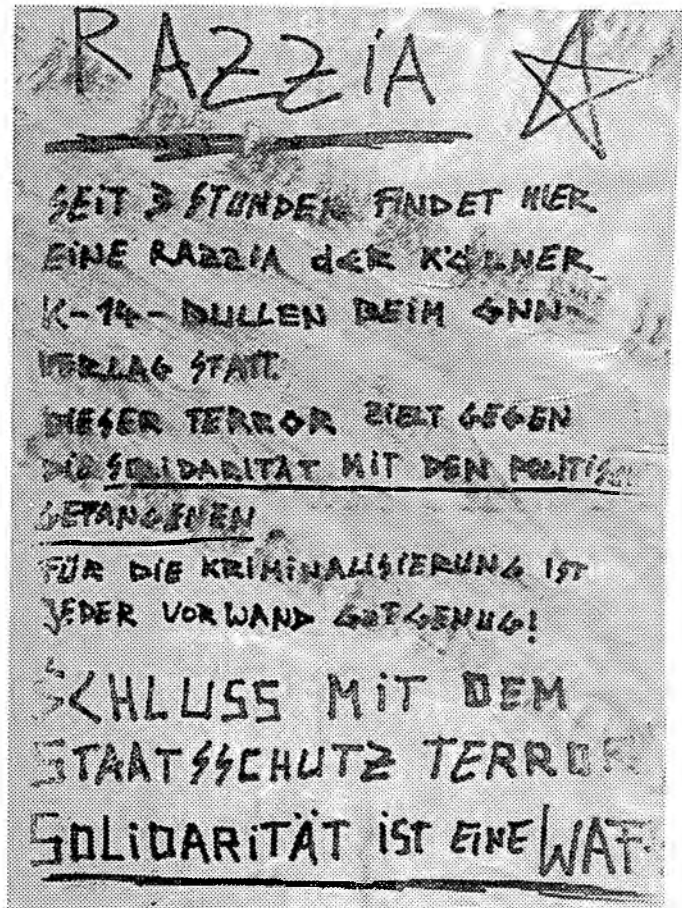 RAZZiA
SEiT 3 STUNDEN FINDET HIER
EiNE RAZZIA dER KÖLNER
K-14-BULLEN BEIM GNN-
VERLAG STATT.
DIESER TERROR ZIELT GEGEN
DIE SOLIDARITÄT MIT DEN POLITISC
GEFANGENEN
FÜR DIE KRIMINALISIERUNG IST
JEDER VORWAND GUT GENUG!
SCHLUSS MiT DEM
STAATSSCHUTZ TERROR
SOLiDARiTÄT iST EiNE WAF